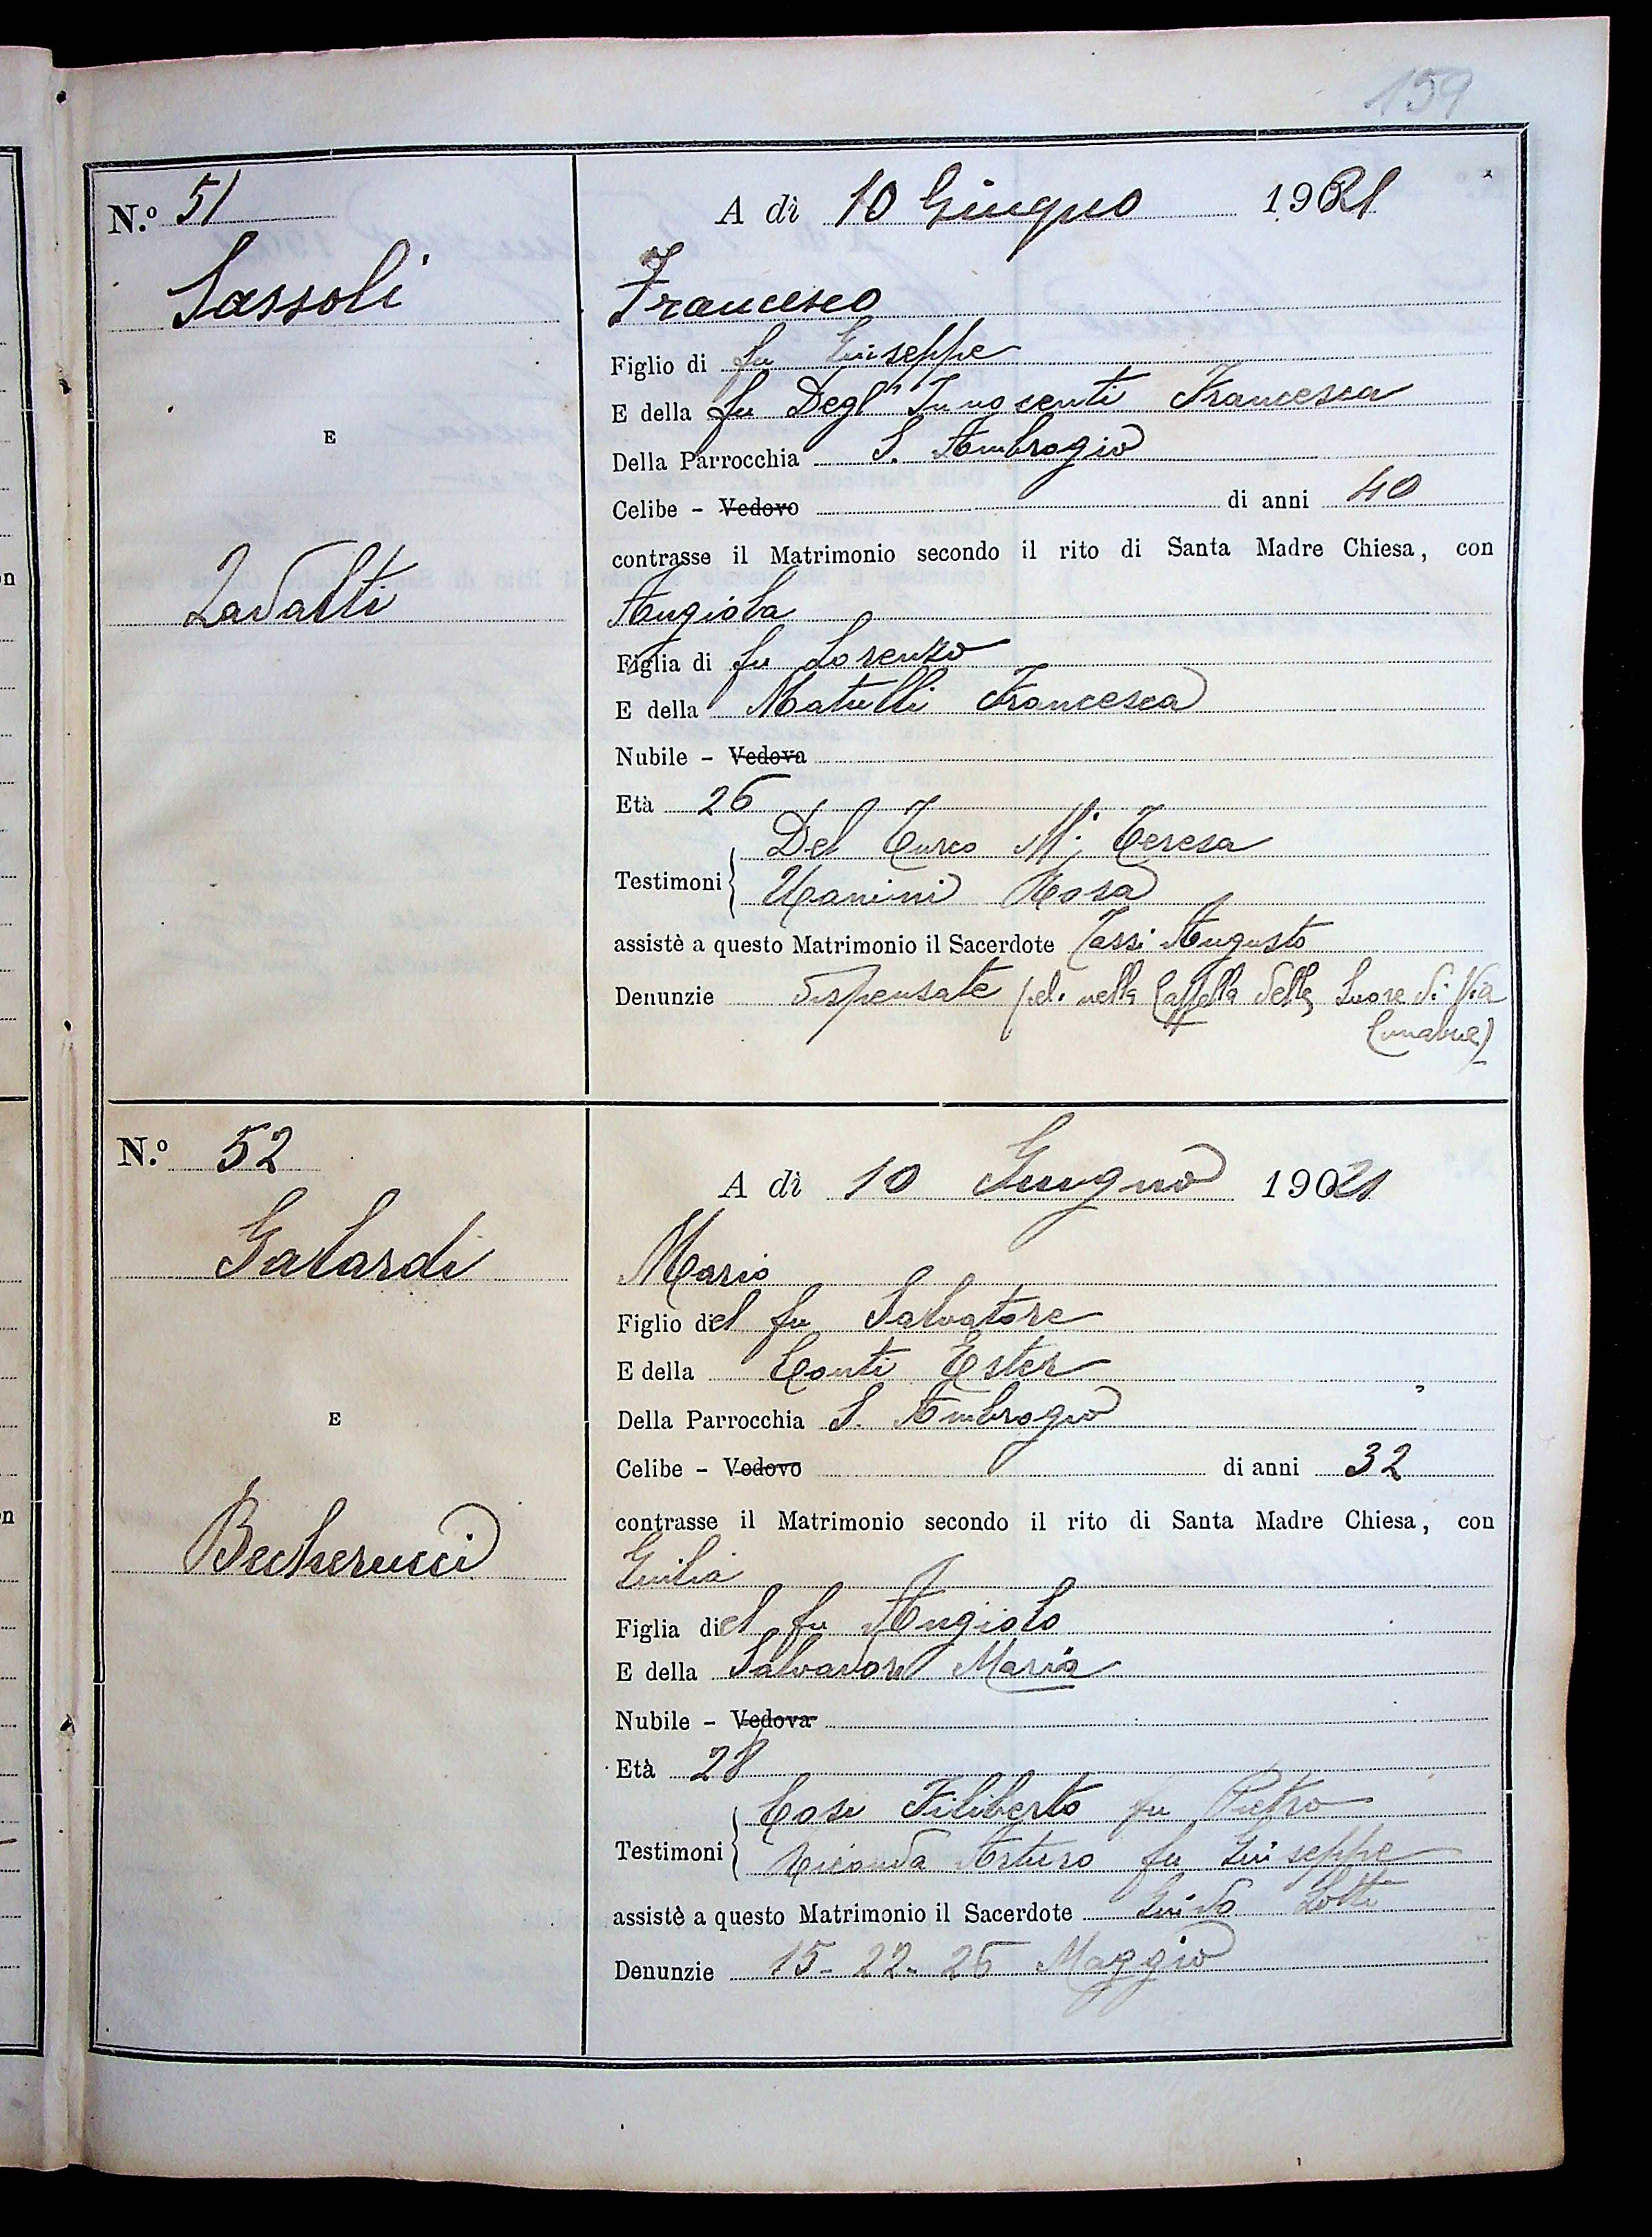 159
N.º 51
A dì 10 Giugno 1921
Sassoli
Francesco
Figlio di fu Giuseppe
E della fu Degl'Innocenti Francesca
E
Della Parrocchia S. Ambrogio
Celibe - Vedovo di anni 40
contrasse il Matrimonio secondo il rito di Santa Madre Chiesa, con
Zavatti
Angiola
Figlia di fu Lorenzo
E della Matulli Francesca
Nubile - Vedova
Età 26
Del Turco M. Teresa
Testimoni
Nanini Rosa
assistè a questo Matrimonio il Sacerdote Tassi Augusto
Denunzie dispensate (cel. nella Cappella delle Suore di Via
Cimabue)
N.º 52
A dì 10 Giugno 1921
Galardi
Mario
Figlio del fu Salvatore
E della Conti Ester
E
Della Parrocchia S. Ambrogio
Celibe - Vedovo di anni 32
contrasse il Matrimonio secondo il rito di Santa Madre Chiesa, con
Becherucci
Giulia
Figlia del fu Angiolo
E della Salvadori Maria
Nubile - Vedova
Età 28
Cosi Filiberto fu Pietro
Testimoni
Arturo fu Giuseppe
assistè a questo Matrimonio il Sacerdote Guido Lotti
Denunzie 15 - 22 - 26 Maggio